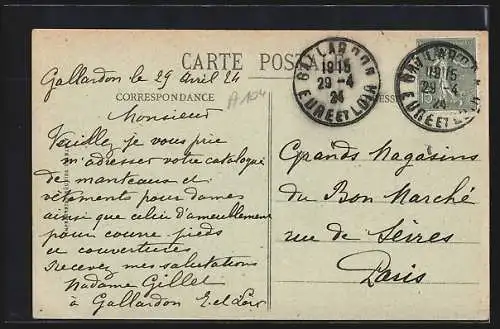 CARTE POSTALE
GALLARDON
19 15
29 -4
24
EURE ET LOIR
GALLARDON
19 15
29 -4
24
EURE ET LOIR
Gallardon le 29 Avril 24
A 104
CORRESPONDANCE
Monsieur
Veuillez, je vous prie
m'adresser votre catalogue
de manteaux et
vêtements pour dames
ainsi que celui d'ameublement
pour couvre-pieds
et couvertures
Recevez mes salutations
Madame Gillet
à Gallardon E. et Loir
Grands Magasins
du Bon Marché
rue de Sèvres
Paris